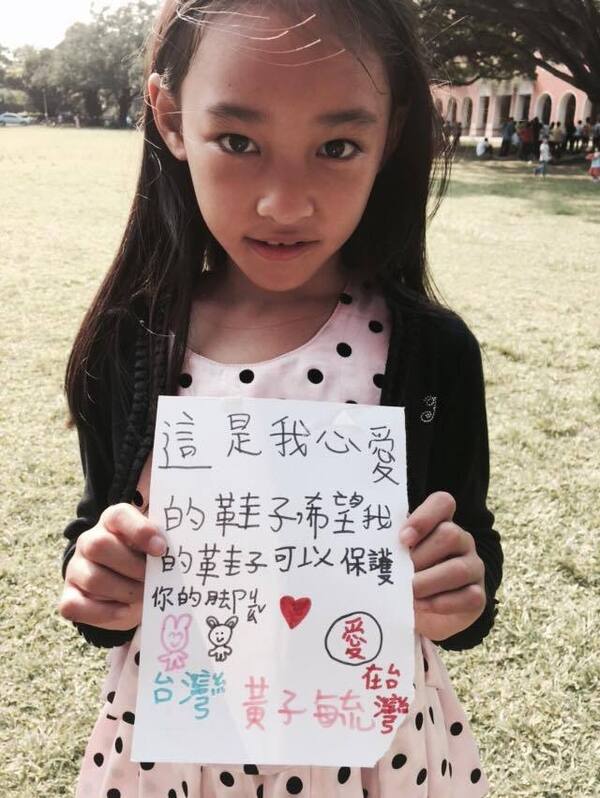 這是我心愛
的鞋子,希望我
的鞋子可以保護
你的腳ㄚ
愛
台灣
在台灣
黃子毓